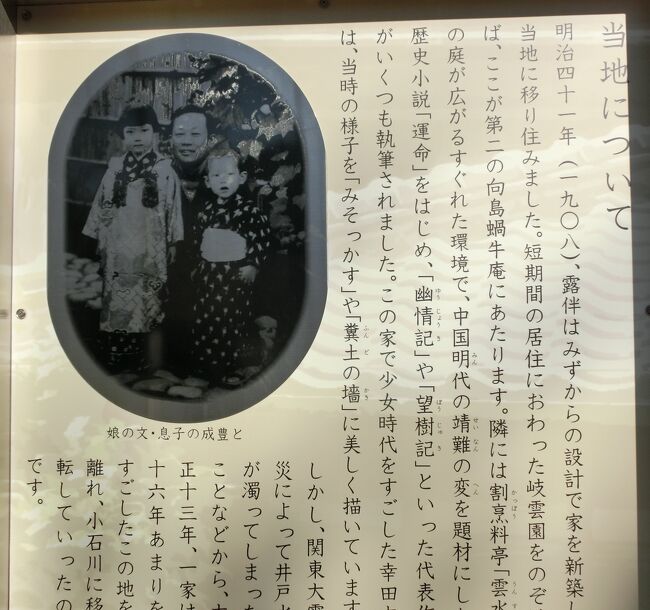 当地について
明治四十一年（一九〇八）、露伴はみずからの設計で家を新築
当地に移り住みました。短期間の居住におわった岐雲園をのぞ
ば、ここが第二の向島蝸牛庵にあたります。隣には割烹料亭「雲水
の庭が広がるすぐれた環境で、中国明代の靖難の変を題材にし
歴史小説「運命」をはじめ、「幽情記」や「望樹記」といった代表作
がいくつも執筆されました。この家で少女時代をすごした幸田
は、当時の様子を「みそっかす」や「糞土の墻」に美しく描いています
しかし、関東大震
災によって井戸
が濁ってしまった
ことなどから、
正十三年、一家は
十六年あまりを
すごしたこの地を
離れ、小石川に移
転していったの
です。
娘の文・息子の成豊と